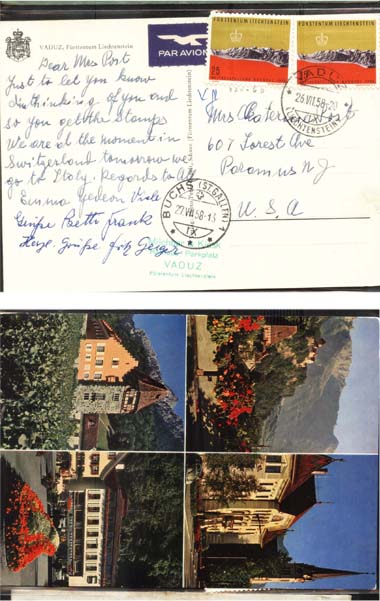 VADUZ, Fürstentum Liechtenstein
PAR AVION
FÜRSTENTUM LIECHTENSTEIN
25
FÜRSTENTUM LIECHTENSTEIN
Dear Mrs Post
Just to let you know
I'm thinking of you and
so you get the stamps
We are at the moment in
Switzerland tomorrow we
go to Italy. Regards to All
Emma Gedeon
Grüße Betti Frank
Herzl. Grüße Geiger
VADUZ
26.VII.58-20
LIECHTENSTEIN
Mrs Post
607 Forest Ave
Paramus NJ
U.S.A
BUCHS (ST.GALLEN) 1
27.VII.58-
IX
Parkplatz
VADUZ
Fürstentum Liechtenstein